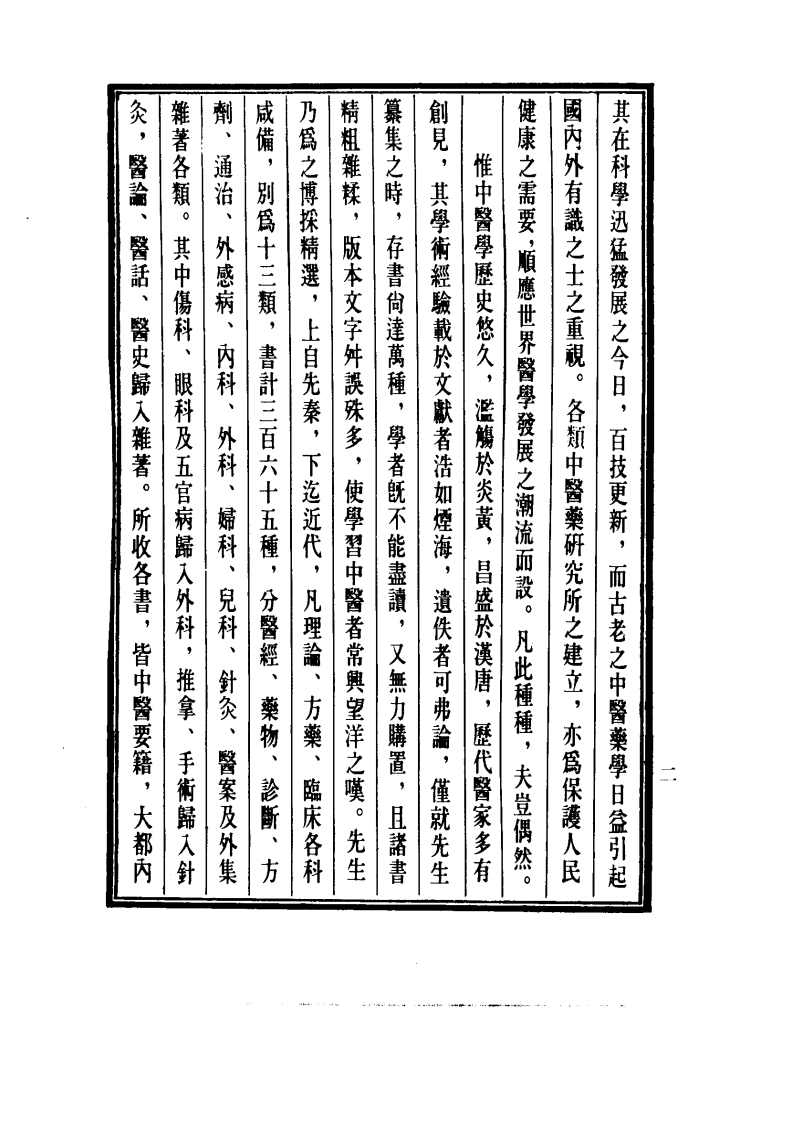 其在科學迅猛發展之今日，百技更新，而古老之中醫藥學日益引起
國內外有識之士之重視。各類中醫藥硏究所之建立，亦爲保護人民
健康之需要，順應世界醫學發展之潮流而設。凡此種種，夫豈偶然。
惟中醫學歷史悠久，濫觴於炎黃，昌盛於漢唐，歷代醫家多有
創見，其學術經驗載於文獻者浩如煙海，遺佚者可弗論，僅就先生
纂集之時，存書尙達萬種，學者旣不能盡讀，又無力購置，且諸書
精粗雜糅，版本文字舛誤殊多，使學習中醫者常興望洋之嘆。先生
乃爲之博採精選，上自先秦，下迄近代，凡理論、方藥、臨床各科
咸備，別爲十三類，書計三百六十五種，分醫經、藥物、診斷、方
劑、通治、外感病、內科、外科、婦科、兒科、針灸、醫案及外集
雜著各類。其中傷科、眼科及五官病歸入外科，推拿、手術歸入針
灸，醫論、醫話、醫史歸入雜著。所收各書，皆中醫要籍，大都內
二